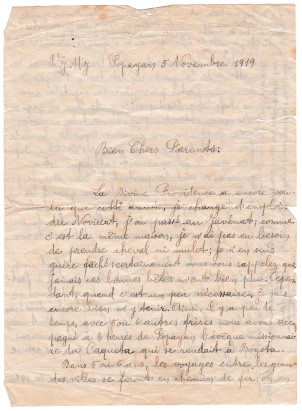 Popayan 5 Novembre 1919
Bien Chers Parents:
La Divine Providence a encore vou-
lu que cette année, je change d'emploi
du Novicat, j'ai passé au Juvénat; comme
c'est la même maison, je n'ai pas eu besoin
de prendre cheval ni mulet; je n'en suis
guère fâché; certainement vous vous rappelez que
jamais ces bonnes bêtes m'ont bien plu. Cepen-
dant, quand c'est un peu nécessaire, je sais
encore bien m'y tenir. Ainsi, il y a peu de
temps, avec 5 ou 6 autres frères nous avons accom-
pagné à 6 heures de Popayan l'évêque missionnai-
re du Caqueta qui se rendait à Bogota.
Dans 5 ou 6 ans, les voyages entre les gran-
des villes se feront en chemin de fer; on en